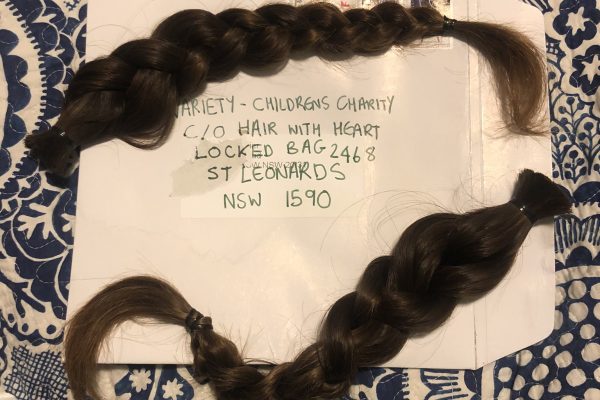 VARIETY - CHILDRENS CHARITY
C/O HAIR WITH HEART
LOCKED BAG 2468
ST LEONARDS
NSW 1590